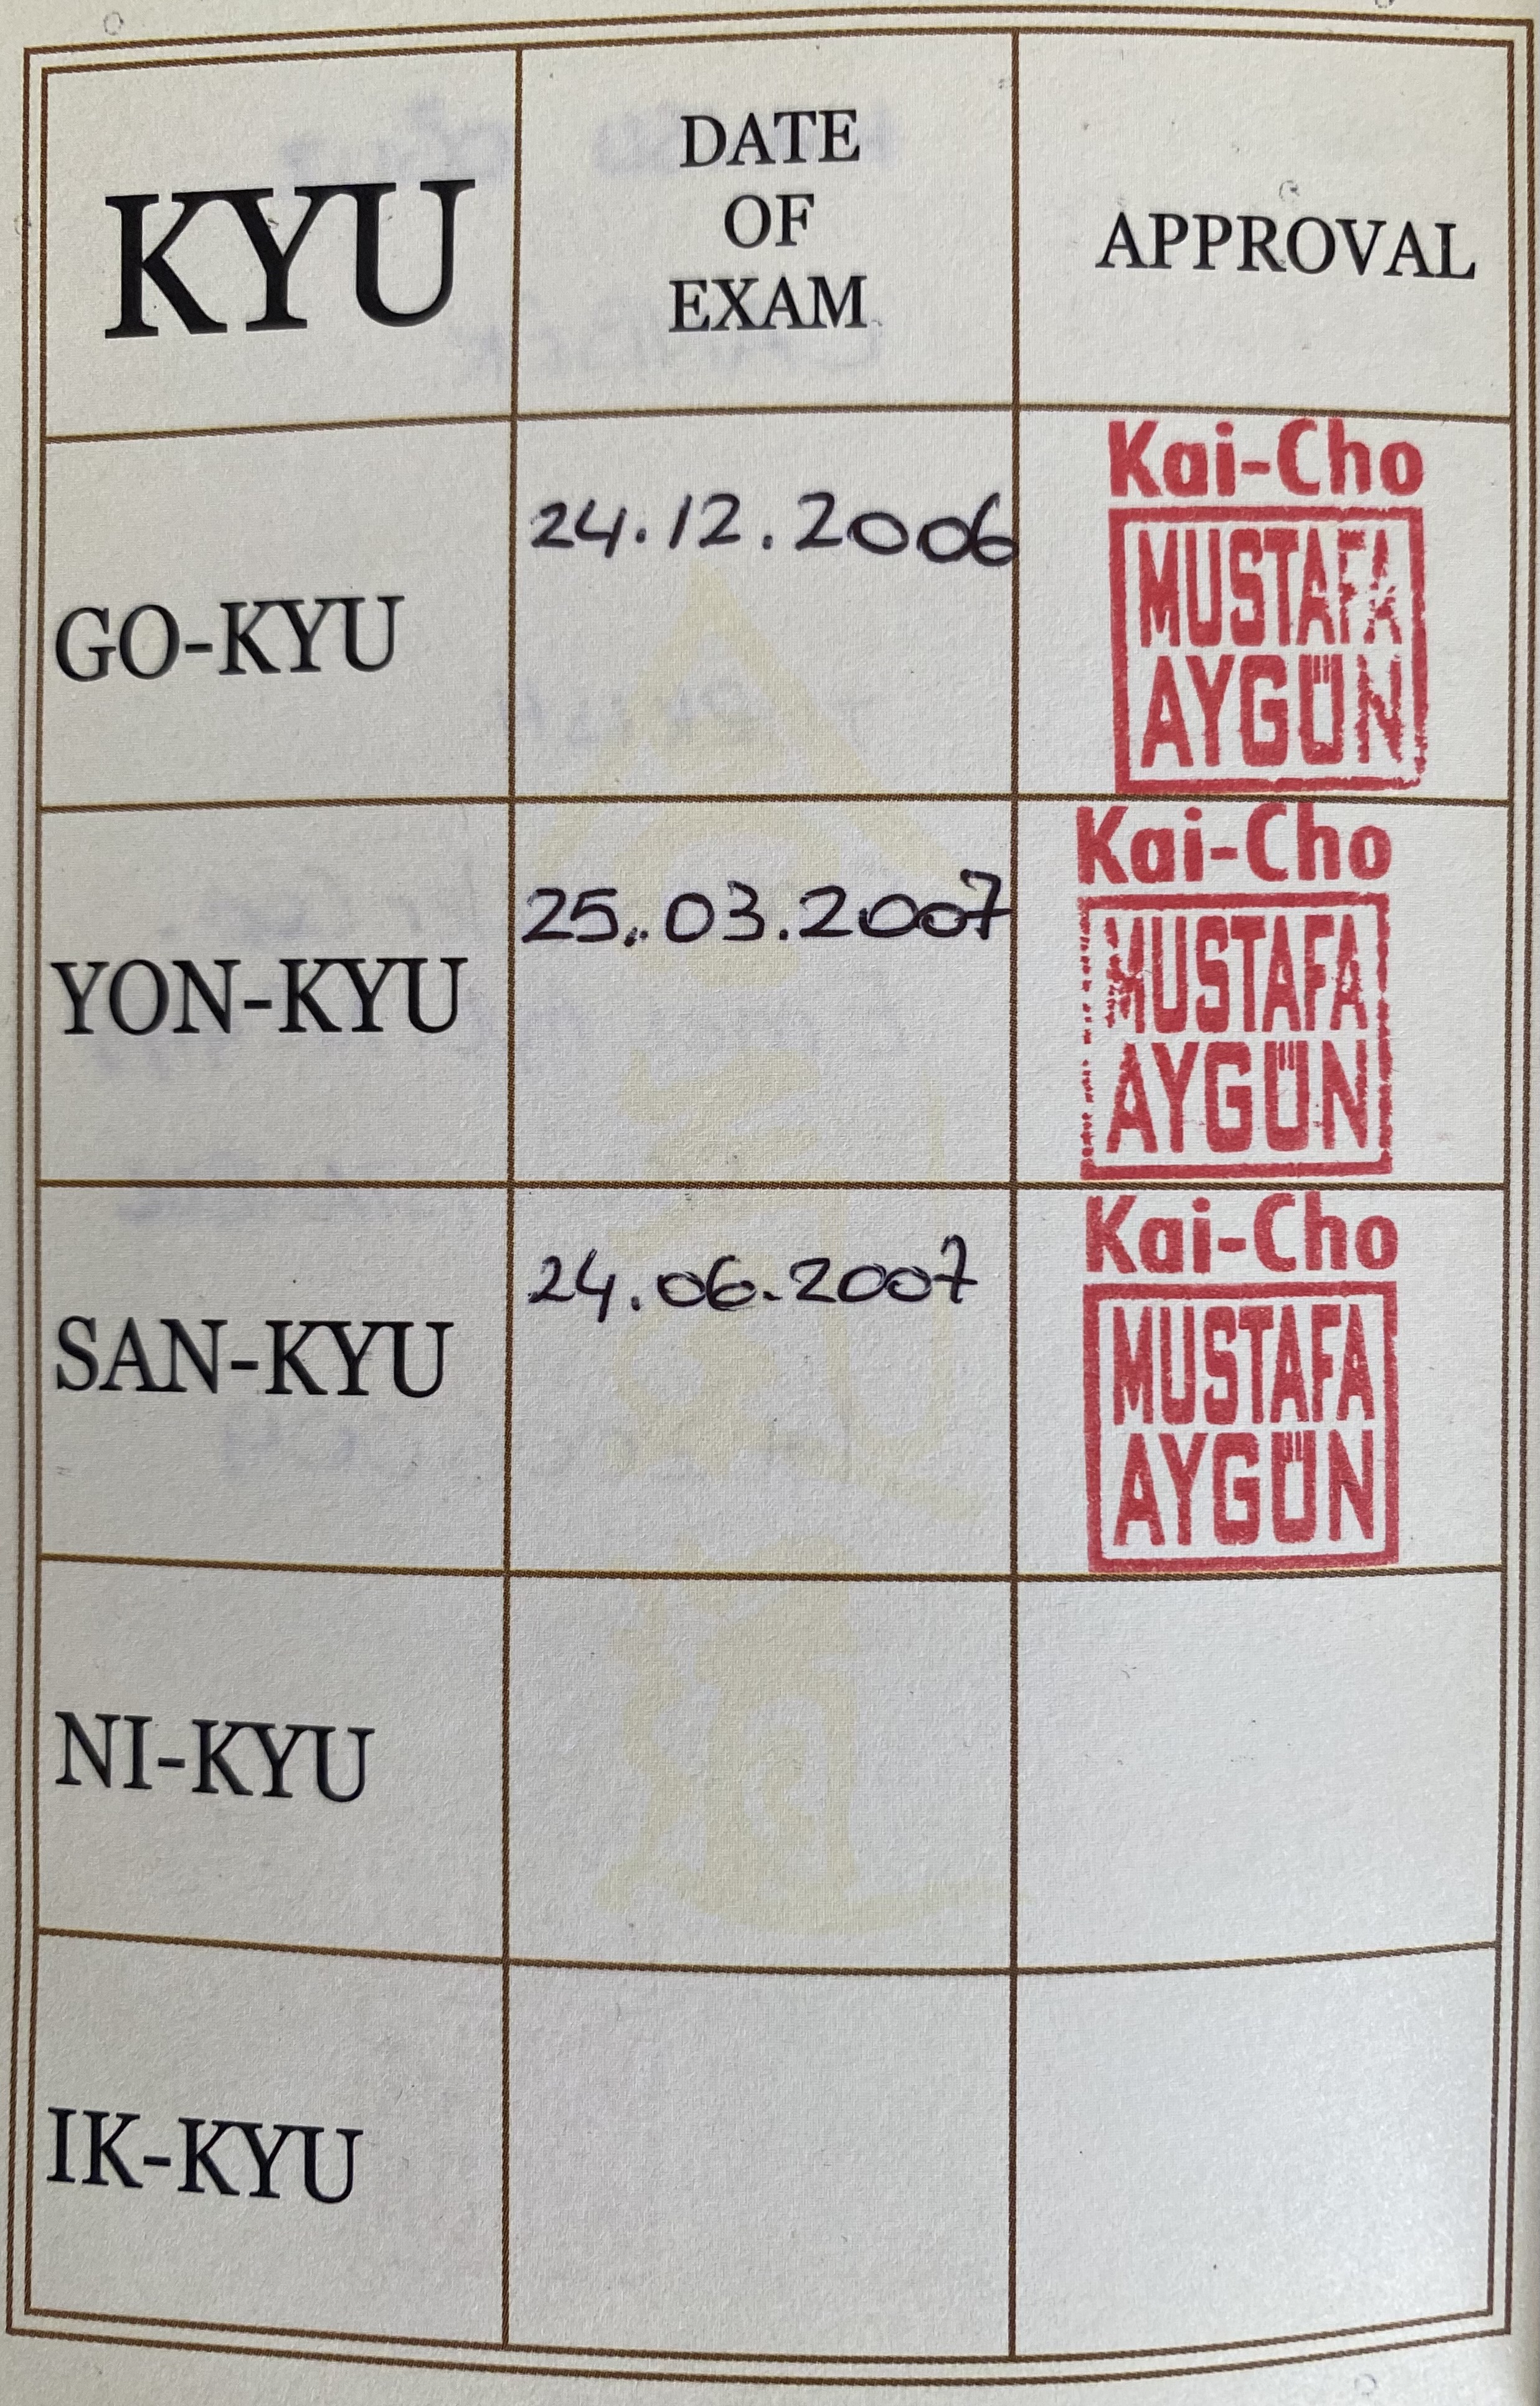 KYU
DATE
OF
EXAM
APPROVAL
GO-KYU
24.12.2006
Kai-Cho
MUSTAFA
AYGÜN
YON-KYU
25.03.2007
Kai-Cho
MUSTAFA
AYGÜN
SAN-KYU
24.06.2007
Kai-Cho
MUSTAFA
AYGÜN
NI-KYU
IK-KYU